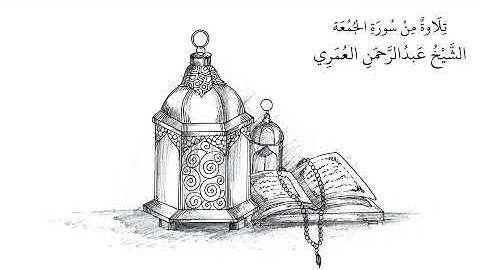 تِلَاوَةٌ مِنْ سُورَةِ الجُمُعَة
الشَّيْخُ عَبدُالرَّحمَنِ العُمَرِي